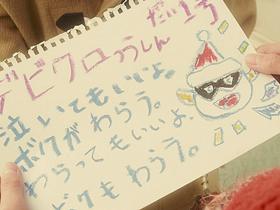 デビクロつうしん
だい1号
泣いてもいいよ。
ボクがわらう。
わらってもいいよ。
ボクもわらう。